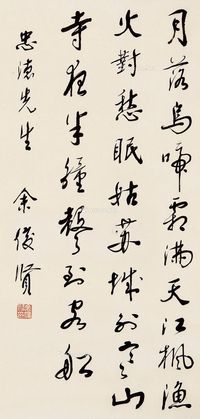 月落烏啼霜滿天江楓漁
火對愁眠姑蘇城外寒山
寺夜半鐘聲到客船
忠德先生
余俊賢